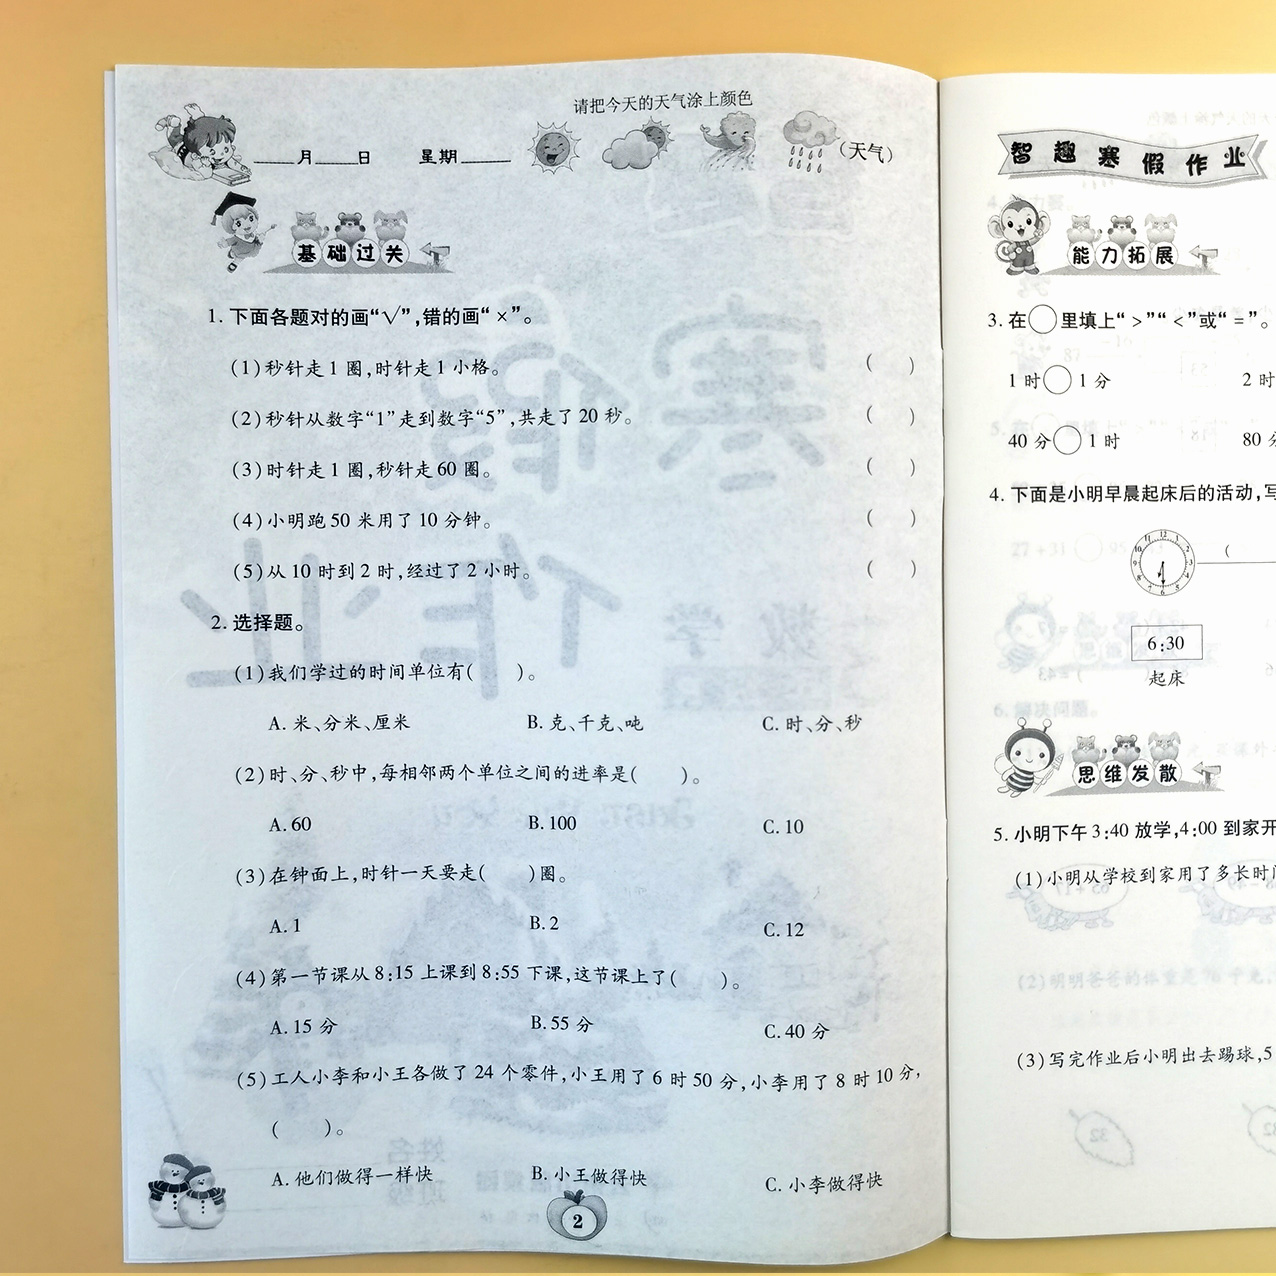 请把今天的天气涂上颜色
____月____日 星期____ (天气)
基础过关
1. 下面各题对的画“√”,错的画“×”。
(1)秒针走1圈,时针走1小格。 ( )
(2)秒针从数字“1”走到数字“5”,共走了20秒。 ( )
(3)时针走1圈,秒针走60圈。 ( )
(4)小明跑50米用了10分钟。 ( )
(5)从10时到2时,经过了2小时。 ( )
2. 选择题。
(1)我们学过的时间单位有( )。
A. 米、分米、厘米 B. 克、千克、吨 C. 时、分、秒
(2)时、分、秒中,每相邻两个单位之间的进率是( )。
A. 60 B. 100 C. 10
(3)在钟面上,时针一天要走( )圈。
A. 1 B. 2 C. 12
(4)第一节课从8:15上课到8:55下课,这节课上了( )。
A. 15分 B. 55分 C. 40分
(5)工人小李和小王各做了24个零件,小王用了6时50分,小李用了8时10分,
( )。
A. 他们做得一样快 B. 小王做得快 C. 小李做得快
2
智趣寒假作业
能力拓展
3. 在○里填上“>”“<”或“=”。
1时○1分 2时
40分○1时 80
4. 下面是小明早晨起床后的活动,写
(
6:30
起床
思维发散
5. 小明下午3:40放学,4:00到家开
(1)小明从学校到家用了多长时
(3)写完作业后小明出去踢球,5